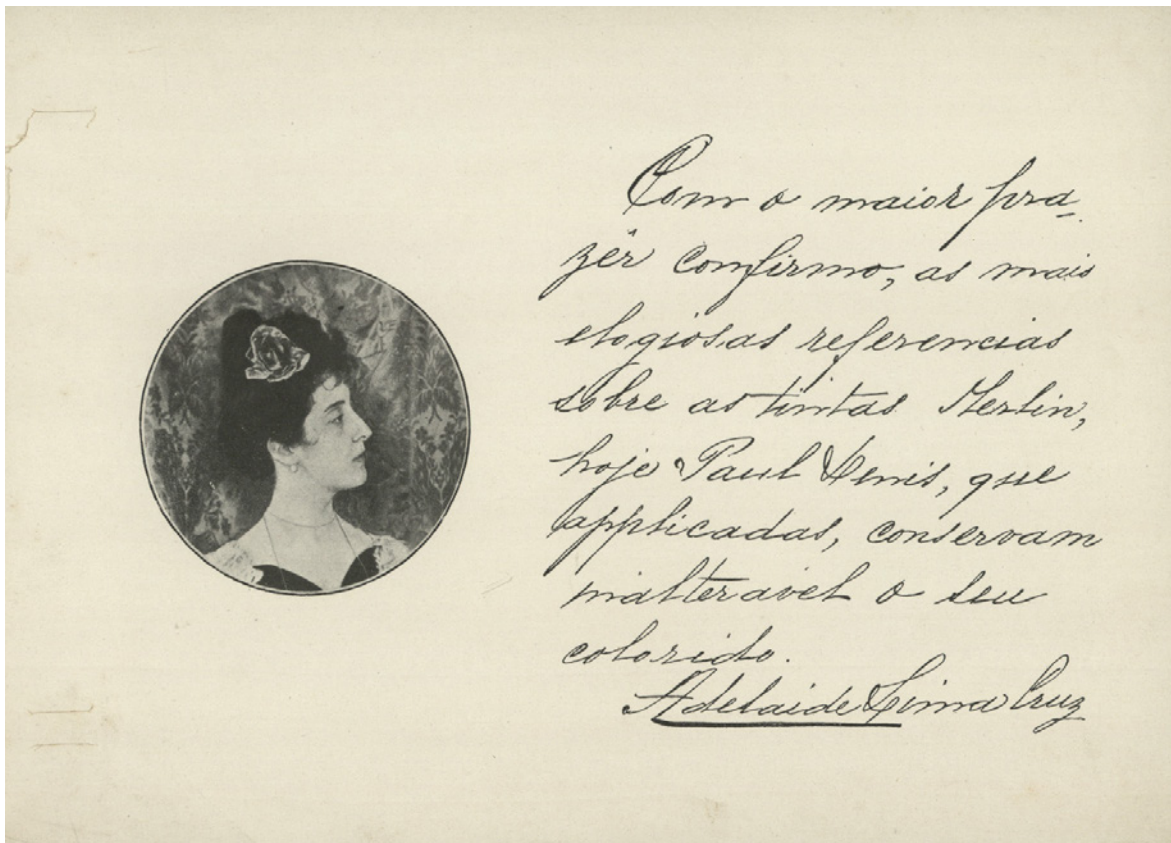 Com o maior pra-
zêr confirmo, as mais
elogiosas referencias
sobre as tintas Merlin,
hoje Paul Denis, que
applicadas, conservam
inalteravel o seu
colorido.
Adelaide Lima Cruz